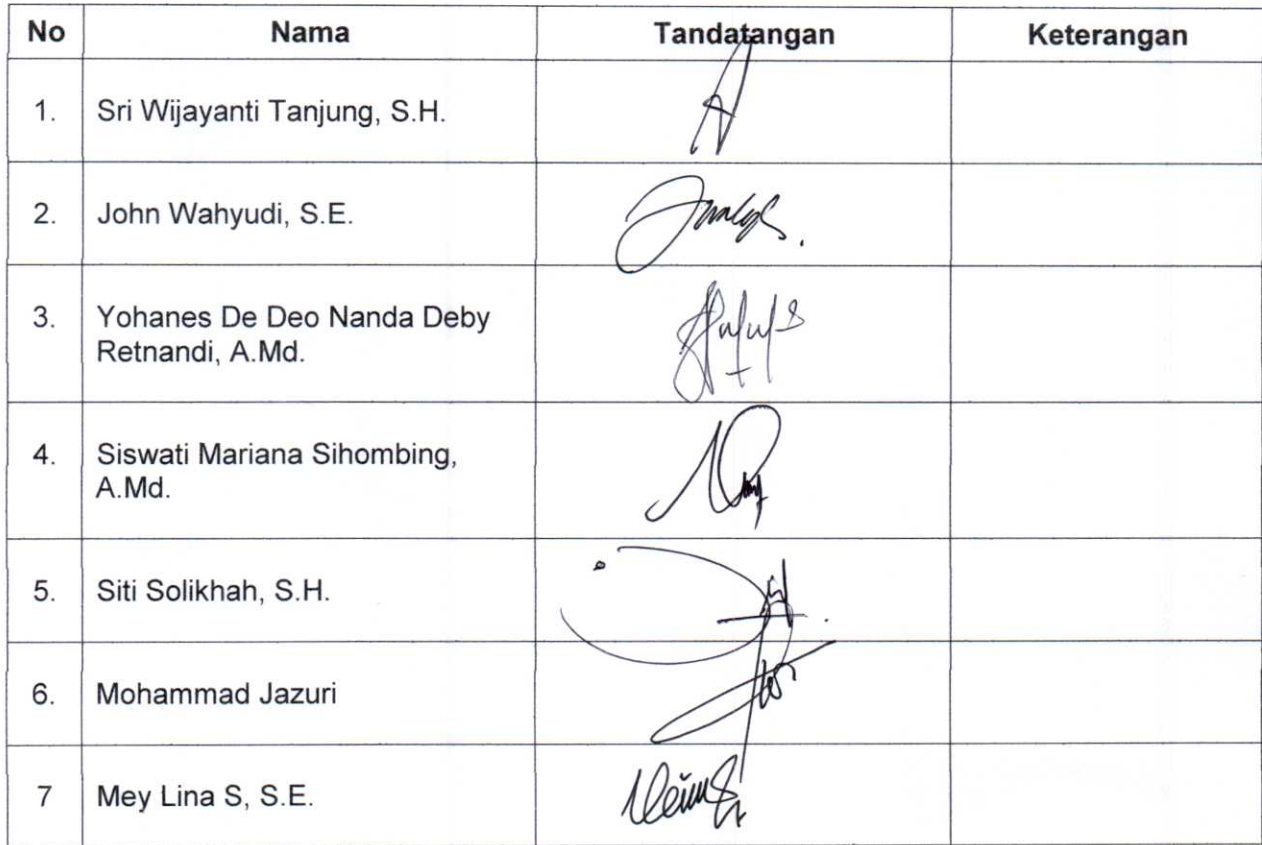 No Nama Tandatangan Keterangan
1. Sri Wijayanti Tanjung, S.H.
2. John Wahyudi, S.E.
3. Yohanes De Deo Nanda Deby
Retnandi, A.Md.
4. Siswati Mariana Sihombing,
A.Md.
5. Siti Solikhah, S.H.
6. Mohammad Jazuri
7 Mey Lina S, S.E.